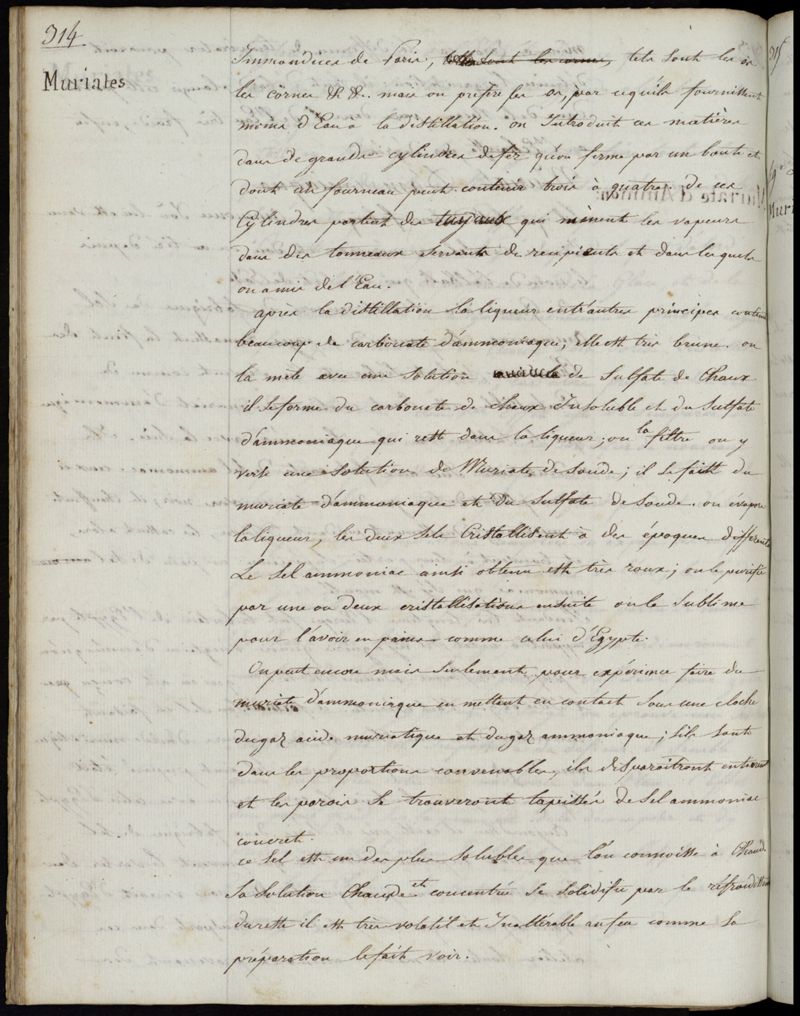 314
Muriates
Immondices de Paris, tels sont les os
les cornes &c &c. mais on préfère les os, par ce qu'ils fournissent
moins d'Eau à la distillation. on Introduit ces matières
dans de grands cylindres de fer qu'on ferme par un bout et
dont un fourneau peut contenir trois à quatre. de ces
Cylindres partent des tuyaux qui mènent les vapeurs
dans des tonneaux servants de recipients et dans lesquels
on a mis de l'Eau.
après la distillation la liqueur entr'autres principes contient
beaucoup de carbonate d'ammoniaque; elle est très brune. on
la mêle avec une solution de Sulfate de Chaux
il se forme du carbonate de chaux Insoluble et du Sulfate
d'ammoniaque qui reste dans la liqueur; on la filtre on y
verse une solution de Muriate de Soude; il se fait du
muriate d'ammoniaque et du Sulfate de Soude. on évapore
la liqueur, les deux sels Cristallisent à des époques différentes
Le Sel ammoniac ainsi obtenu est très roux; on le purifie
par une ou deux cristallisations ensuite on le Sublime
pour l'avoir en pains comme celui d'Egypte.
On peut encore mais seulement pour expérience faire du
muriate d'ammoniaque en mettant en contact sous une cloche
du gaz acide muriatique et du gaz ammoniaque; s'ils sont
dans les proportions convenables, ils disparaitront entièrement
et les parois se trouveront tapissées de Sel ammoniac
concret.
ce Sel est un des plus solubles que l'on connoisse à Chaud
Sa Solution Chaude et concentrée se solidifie par le refroidissement
du reste il est très volatil et Inaltérable au feu comme sa
préparation le fait voir.